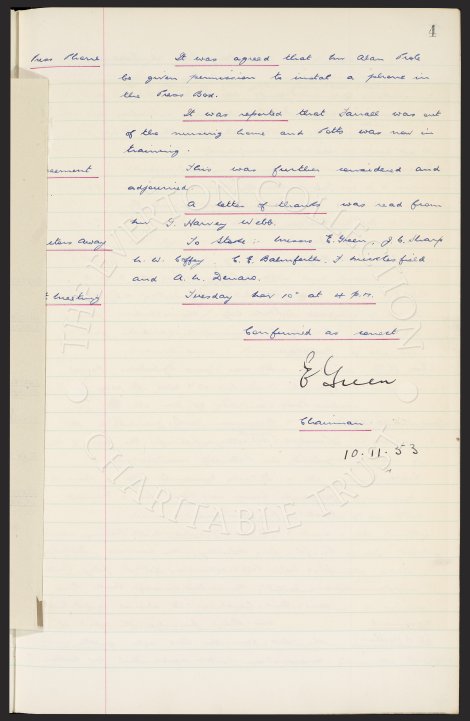 4
Press Phone It was agreed that Mr Alan Prole
be given permission to instal a phone in
the Press Box.
It was reported that Farrall was out
of the nursing home and Potts was now in
training.
This was further considered and
adjourned
A letter of thanks was read from
Mr T. Harvey Webb.
ters Away To Stoke :- Messrs E. Green, J. C. Sharp
W. W. Coffey, C. E. Balmforth, F. Micklesfield
and A. W. Denaro.
Meeting Tuesday Nov 10th at 4 p.m.
Confirmed as correct
E Green
Chairman
10.11.53
THE EVERTON COLLECTION
CHARITABLE TRUST